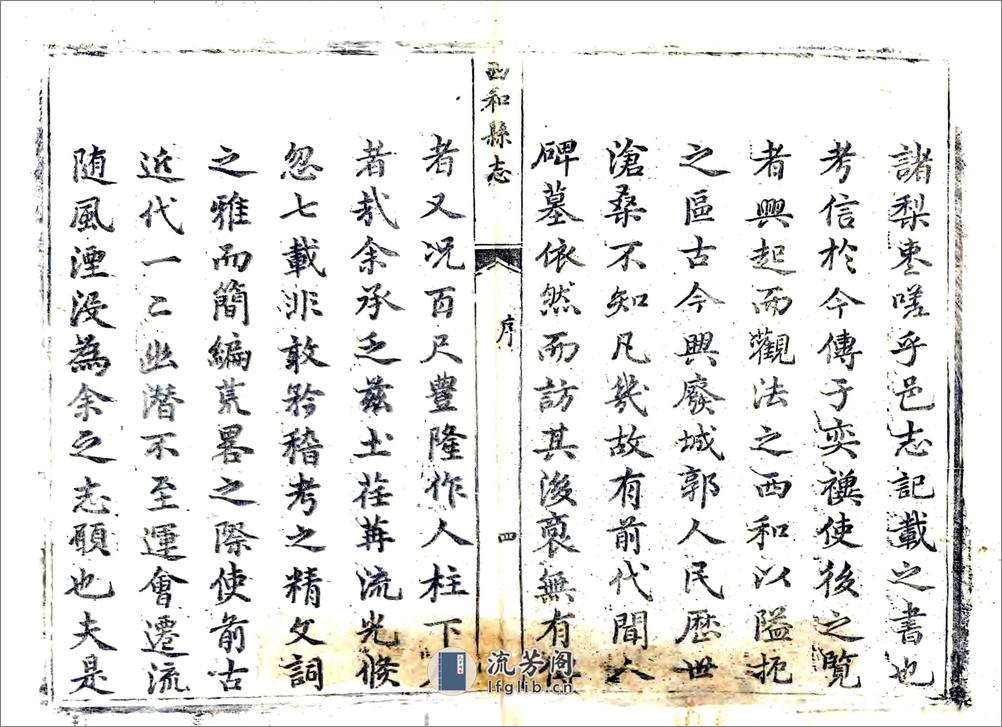 諸梨棗嗟乎邑志記載之書也
考信於今傳于奕禩使後之覽
者興起而觀法之西和以隘扼
之區古今興廢城郭人民歷世
滄桑不知凡幾故有前代聞人
碑墓依然而訪其後裔無有
西和縣志
序
四
者又况百尺豐隆作人柱下
者哉余承乏茲土荏苒流光倏
忽七載非敢矜稽考之精文詞
之雅而簡編荒畧之際使前古
近代一二幽潛不至運會遷流
随風湮没為余之志願也夫是
流芳阁
lfglib.cn